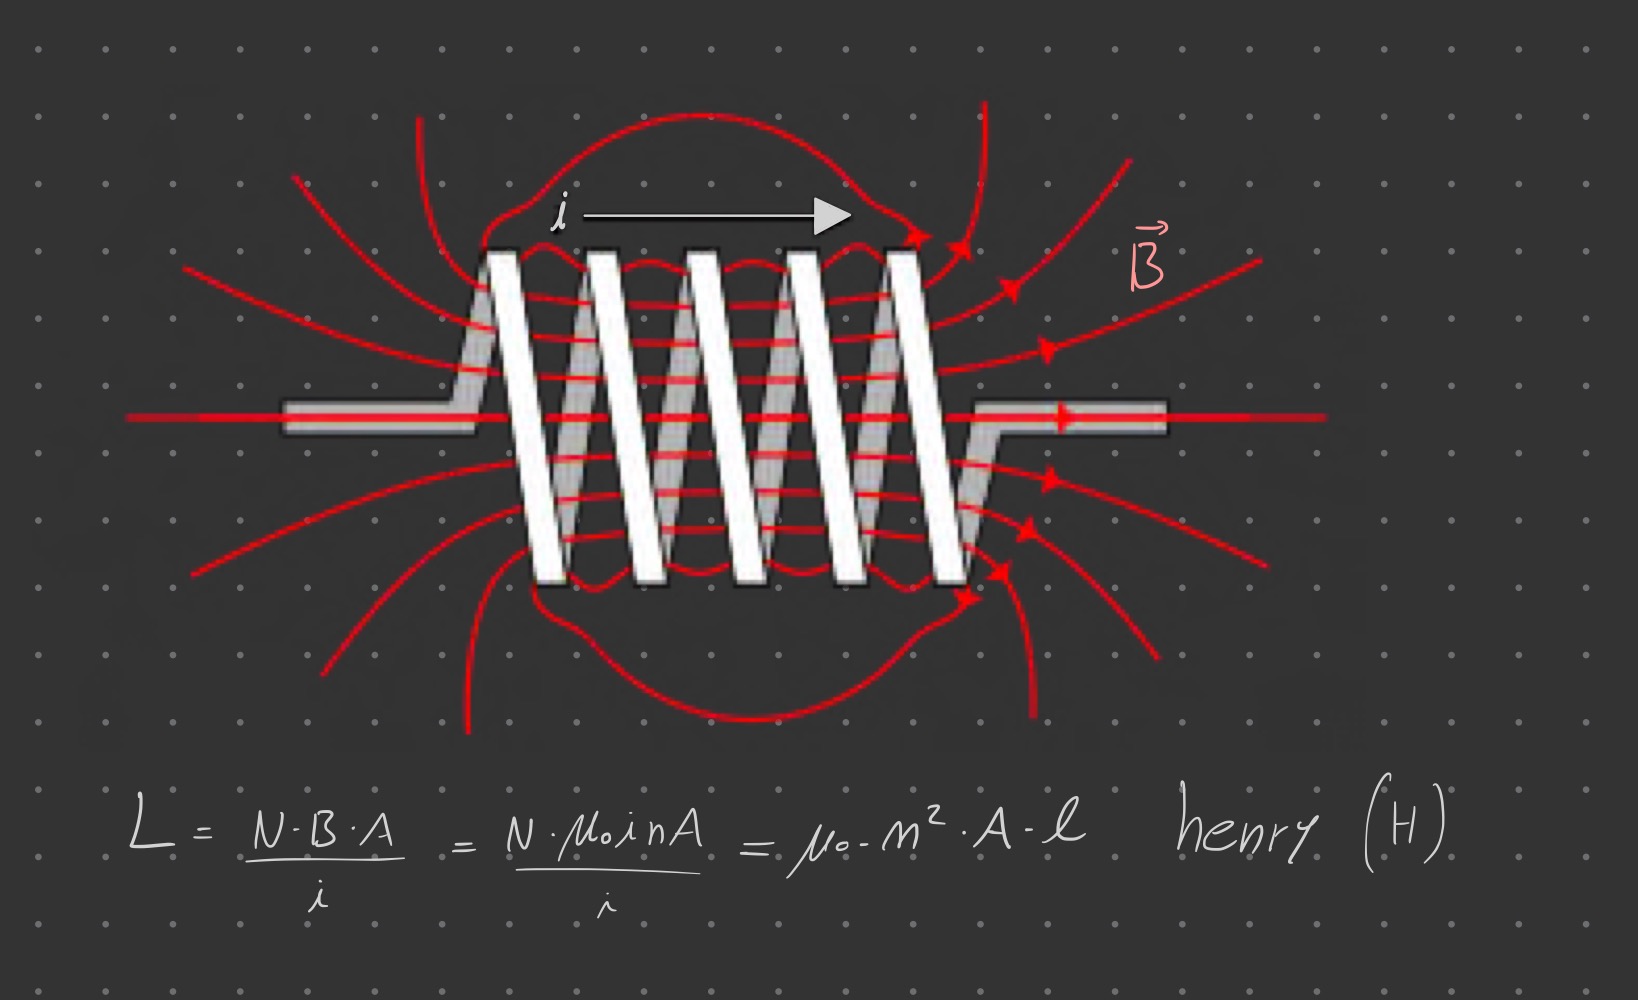 i
B⃗
L = N·B·A / i = N·μ₀inA / i = μ₀·n²·A·l henry (H)